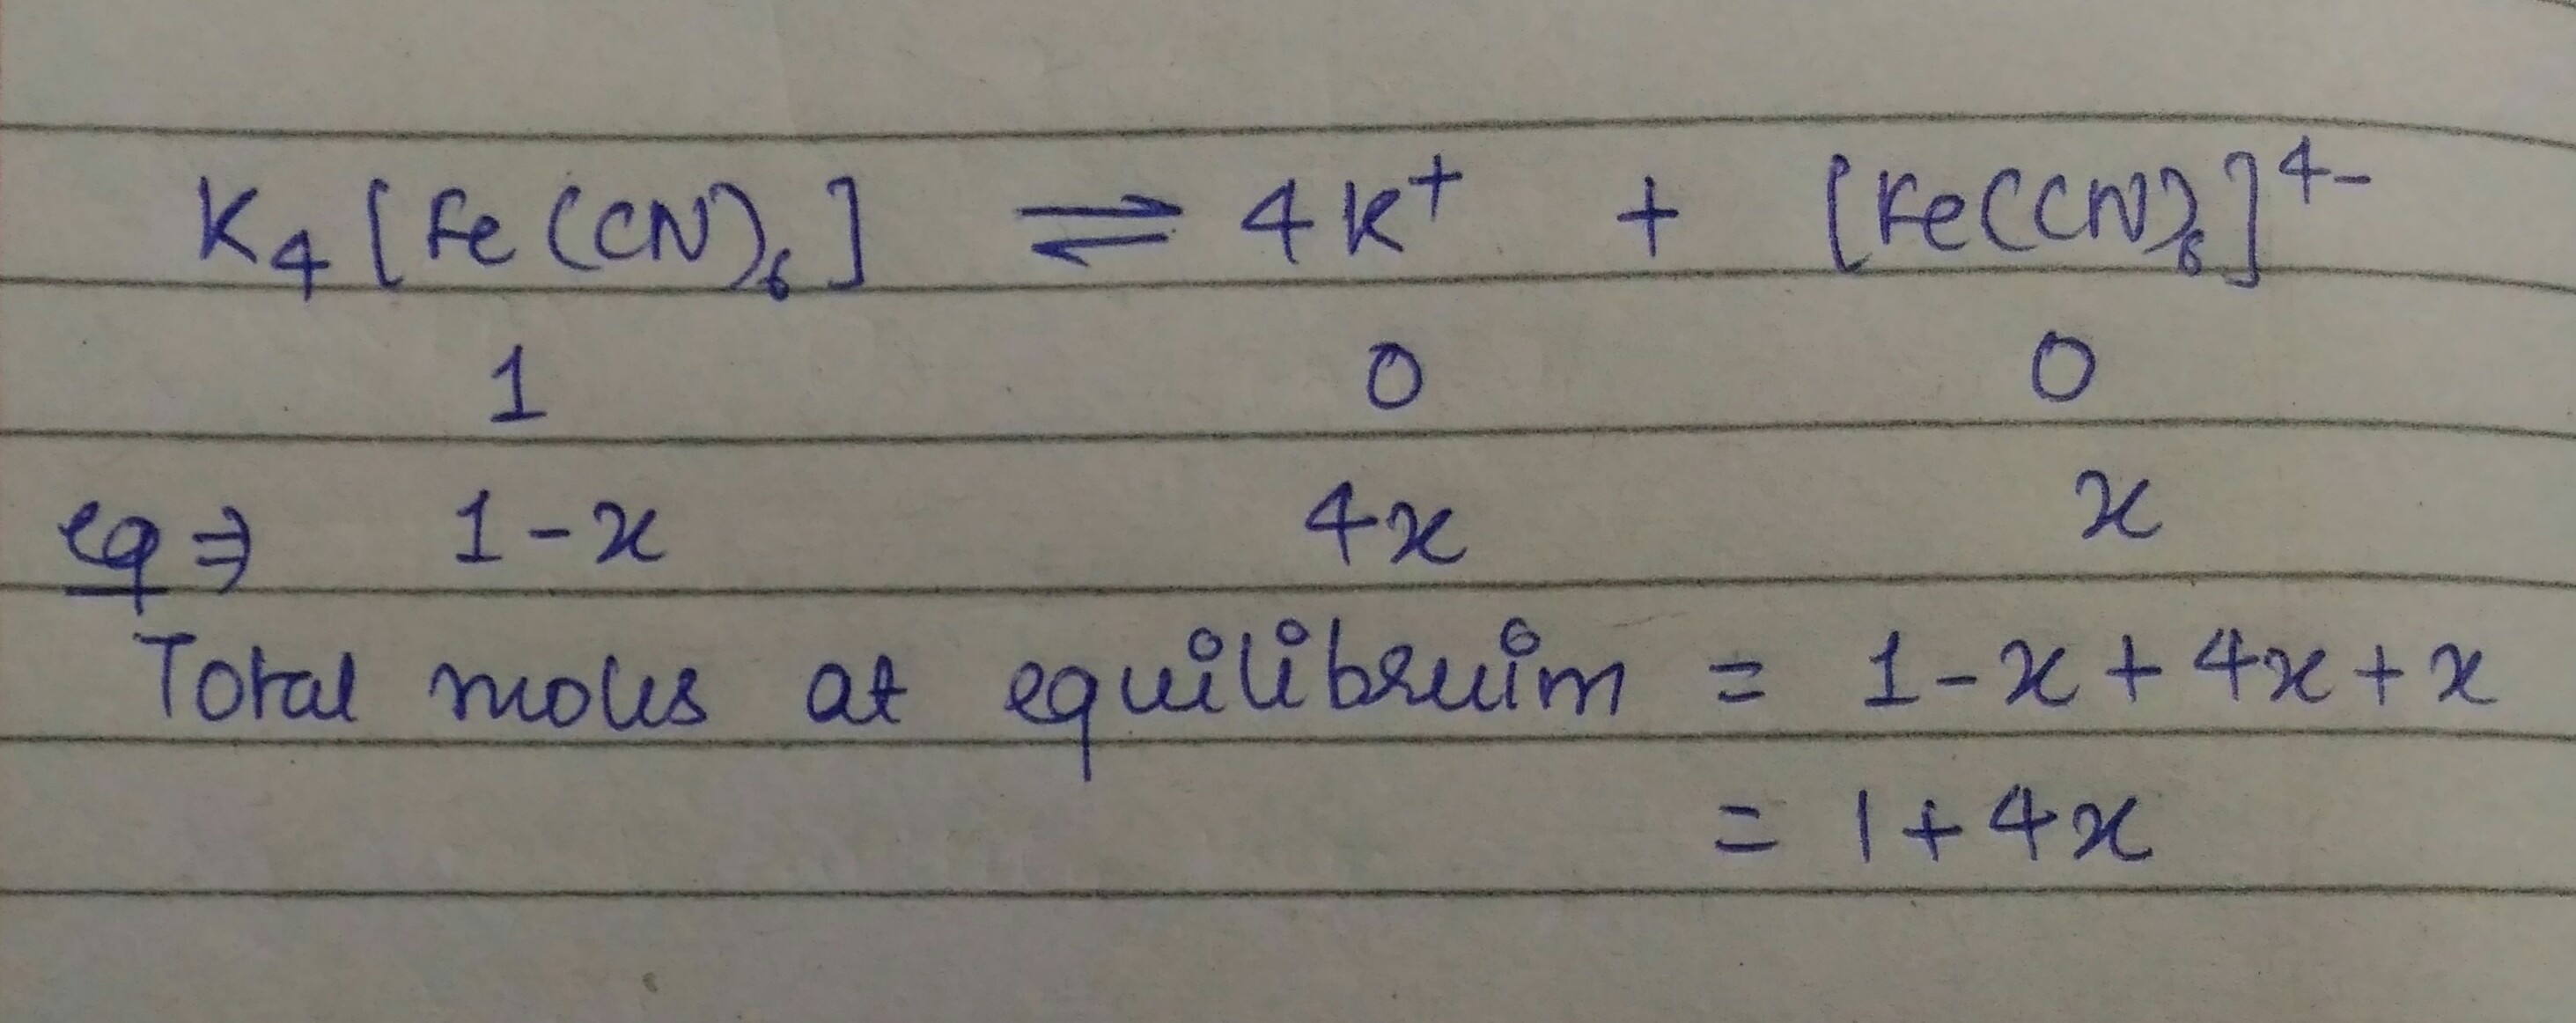 K₄[Fe(CN)₆] ⇌ 4K⁺ + [Fe(CN)₆]⁴⁻
1 0 0
eq ⇒ 1-x 4x x
Total moles at equilibruim = 1-x+4x+x
= 1+4x